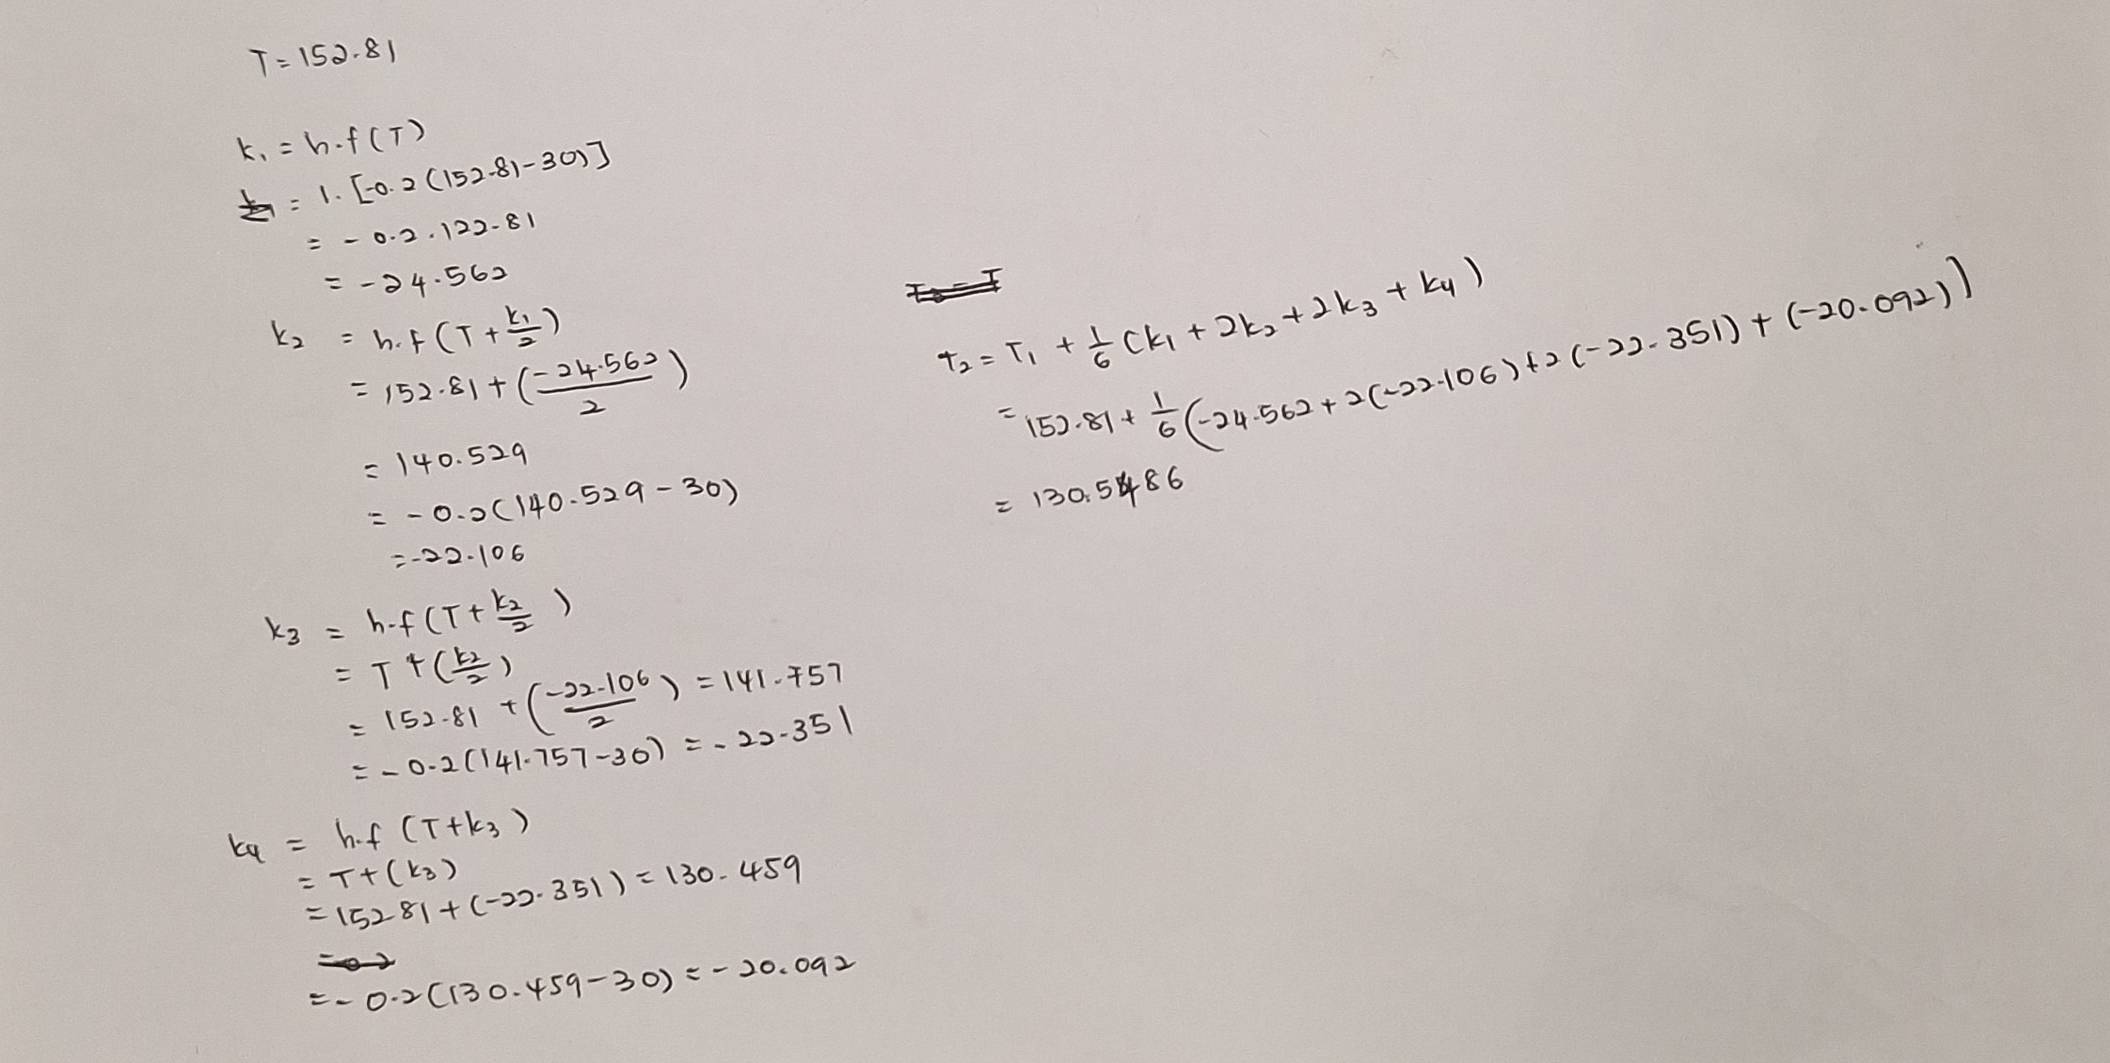 T = 152.81
k₁ = h.f(T)
= 1. [-0.2(152.81-30)]
= - 0.2 . 122.81
= -24.562
k₂ = h.f(T + k₁/2)
= 152.81 + (-24.562/2)
= 140.529
= -0.2(140.529-30)
= -22.106
k₃ = h.f(T + k₂/2)
= T + (k₂/2)
= 152.81 + (-22.106/2) = 141.757
= -0.2(141.757-30) = -22.351
k₄ = h.f (T+k₃)
= T+(k₃)
= 152.81+(-22.351) = 130.459
= -0.2(130.459-30) = -20.092
T₂ = T₁ + 1/6 (k₁ + 2k₂ + 2k₃ + k₄)
= 152.81 + 1/6 (-24.562 + 2(-22.106) + 2(-22.351) + (-20.092))